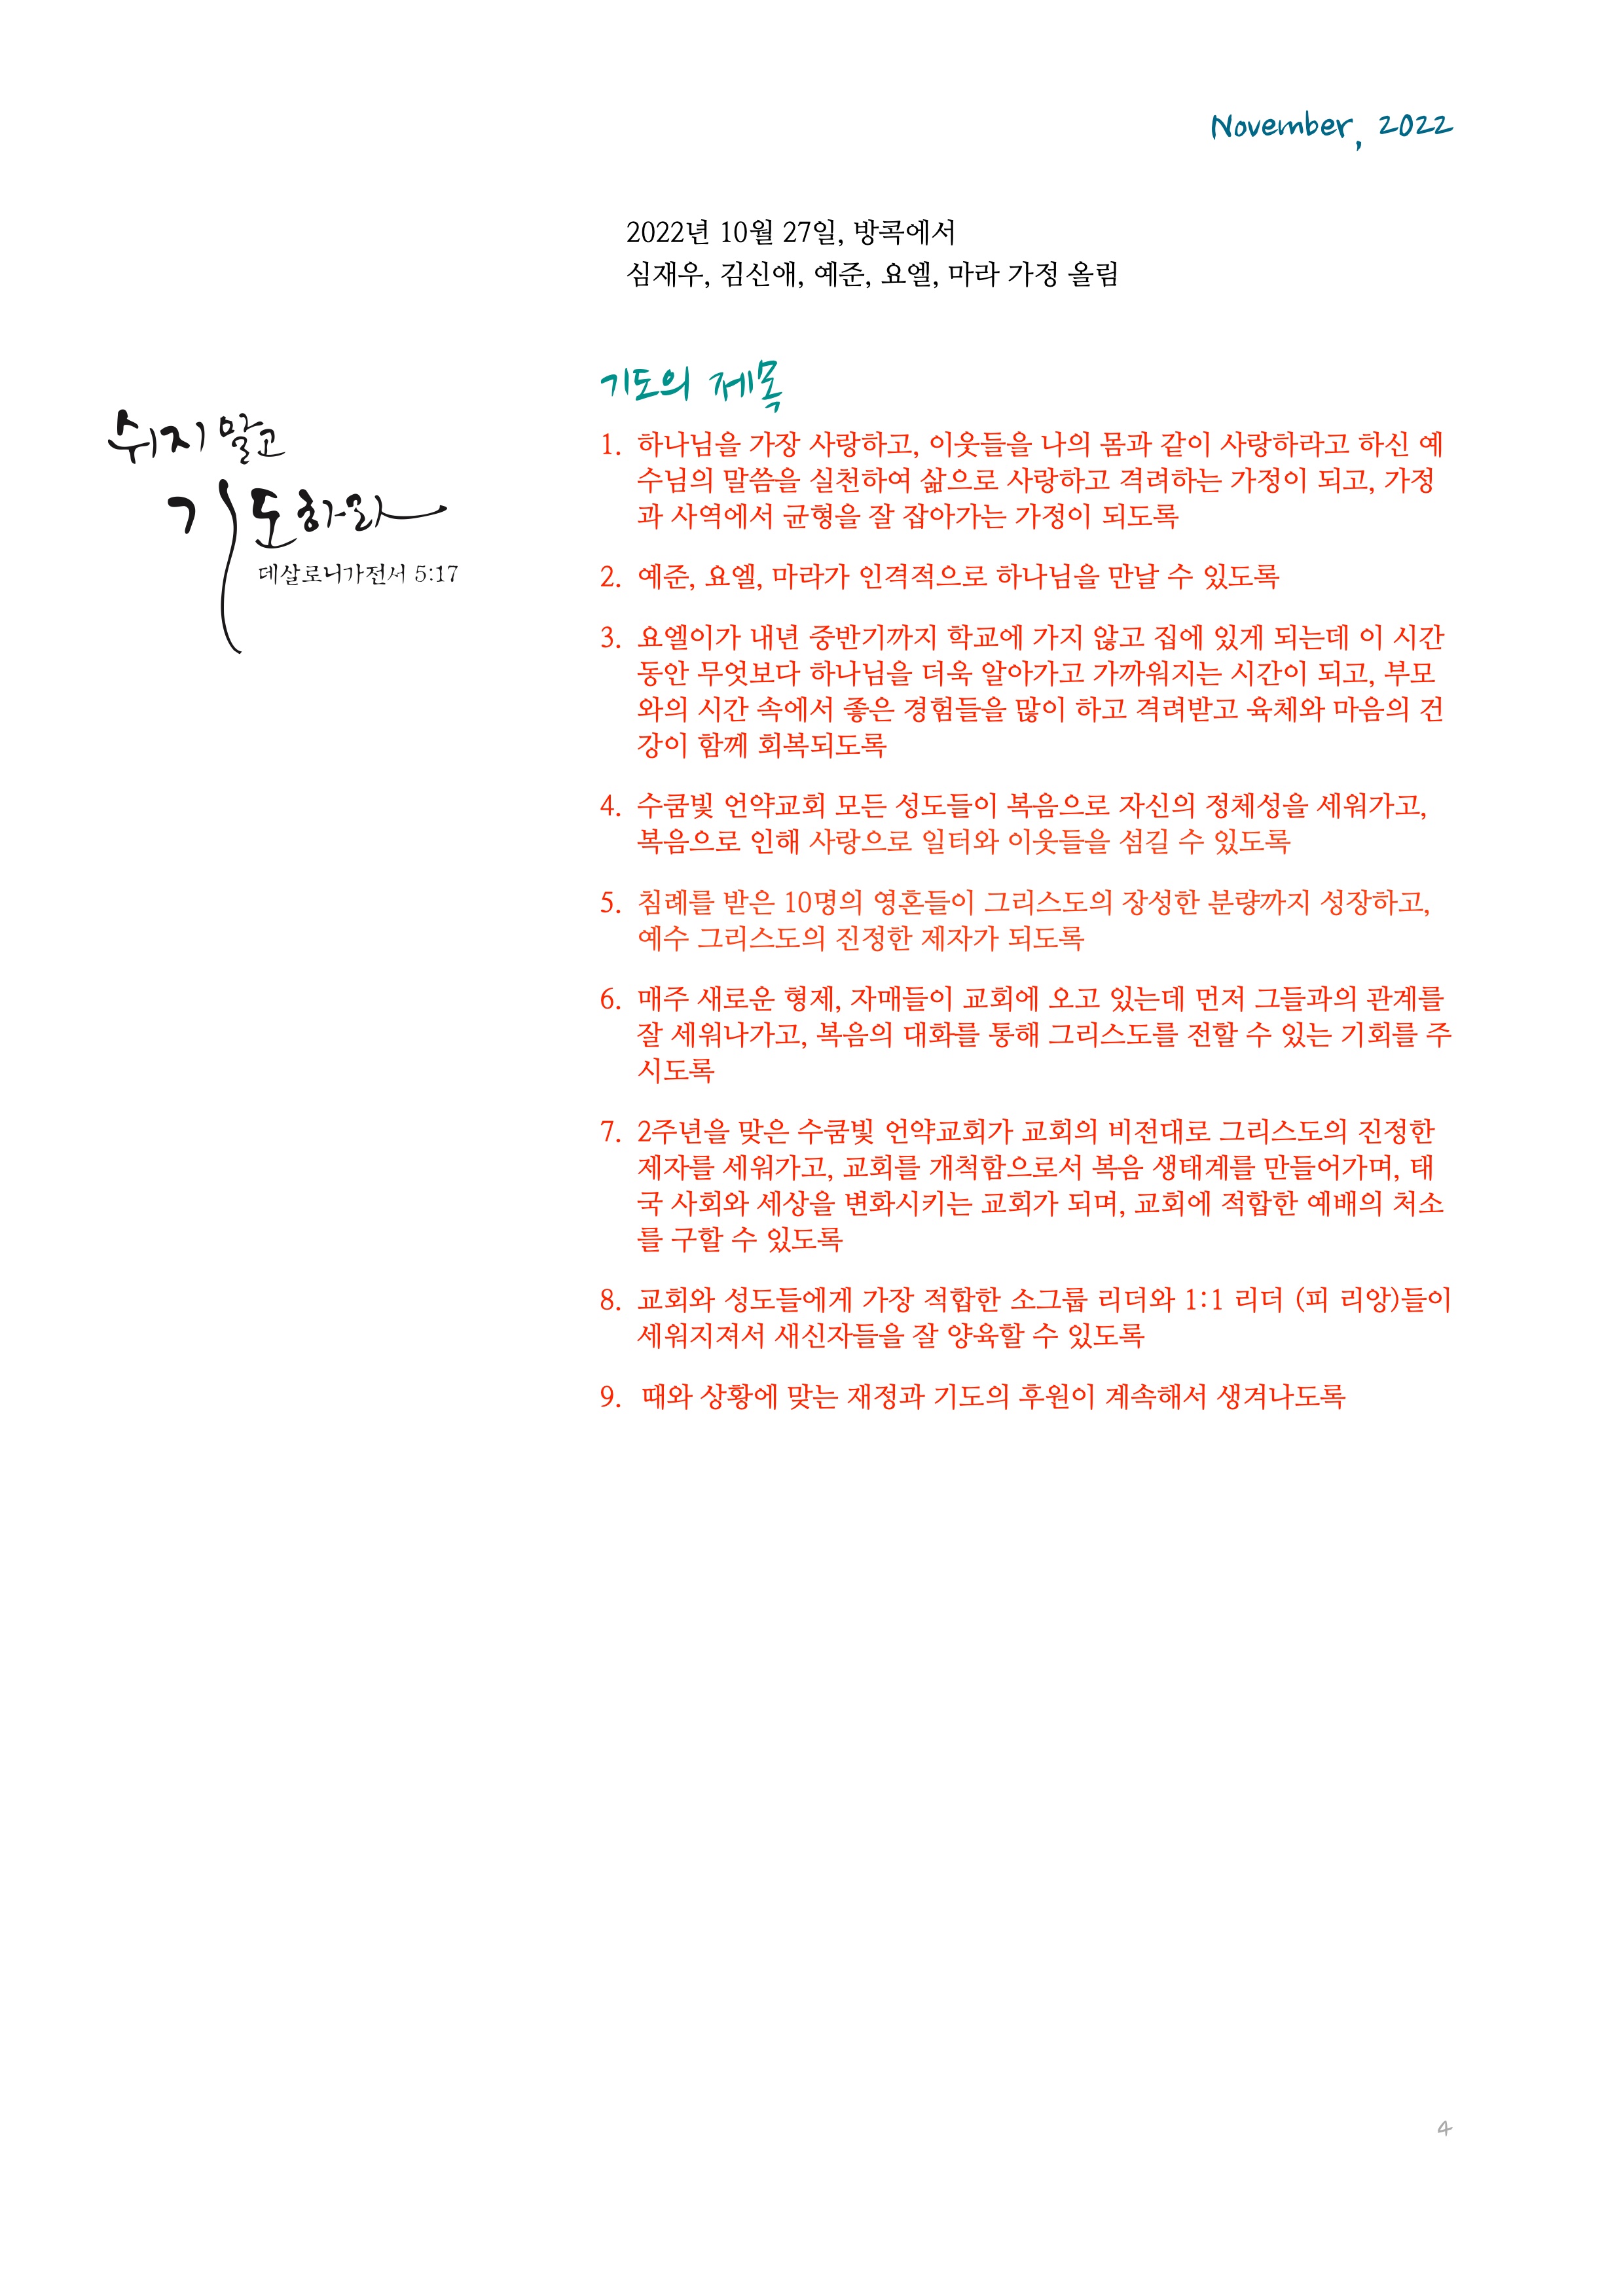 November, 2022
2022년 10월 27일, 방콕에서
심재우, 김신애, 예준, 요엘, 마라 가정 올림
쉬지 말고
기도하라
데살로니가전서 5:17
기도의 제목
1. 하나님을 가장 사랑하고, 이웃들을 나의 몸과 같이 사랑하라고 하신 예
수님의 말씀을 실천하여 삶으로 사랑하고 격려하는 가정이 되고, 가정
과 사역에서 균형을 잘 잡아가는 가정이 되도록
2. 예준, 요엘, 마라가 인격적으로 하나님을 만날 수 있도록
3. 요엘이가 내년 중반기까지 학교에 가지 않고 집에 있게 되는데 이 시간
동안 무엇보다 하나님을 더욱 알아가고 가까워지는 시간이 되고, 부모
와의 시간 속에서 좋은 경험들을 많이 하고 격려받고 육체와 마음의 건
강이 함께 회복되도록
4. 수쿰빛 언약교회 모든 성도들이 복음으로 자신의 정체성을 세워가고,
복음으로 인해 사랑으로 일터와 이웃들을 섬길 수 있도록
5. 침례를 받은 10명의 영혼들이 그리스도의 장성한 분량까지 성장하고,
예수 그리스도의 진정한 제자가 되도록
6. 매주 새로운 형제, 자매들이 교회에 오고 있는데 먼저 그들과의 관계를
잘 세워나가고, 복음의 대화를 통해 그리스도를 전할 수 있는 기회를 주
시도록
7. 2주년을 맞은 수쿰빛 언약교회가 교회의 비전대로 그리스도의 진정한
제자를 세워가고, 교회를 개척함으로서 복음 생태계를 만들어가며, 태
국 사회와 세상을 변화시키는 교회가 되며, 교회에 적합한 예배의 처소
를 구할 수 있도록
8. 교회와 성도들에게 가장 적합한 소그룹 리더와 1:1 리더 (피 리앙)들이
세워지져서 새신자들을 잘 양육할 수 있도록
9. 때와 상황에 맞는 재정과 기도의 후원이 계속해서 생겨나도록
4